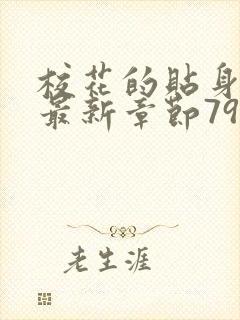 校花的貼身
最新章節79
老生涯